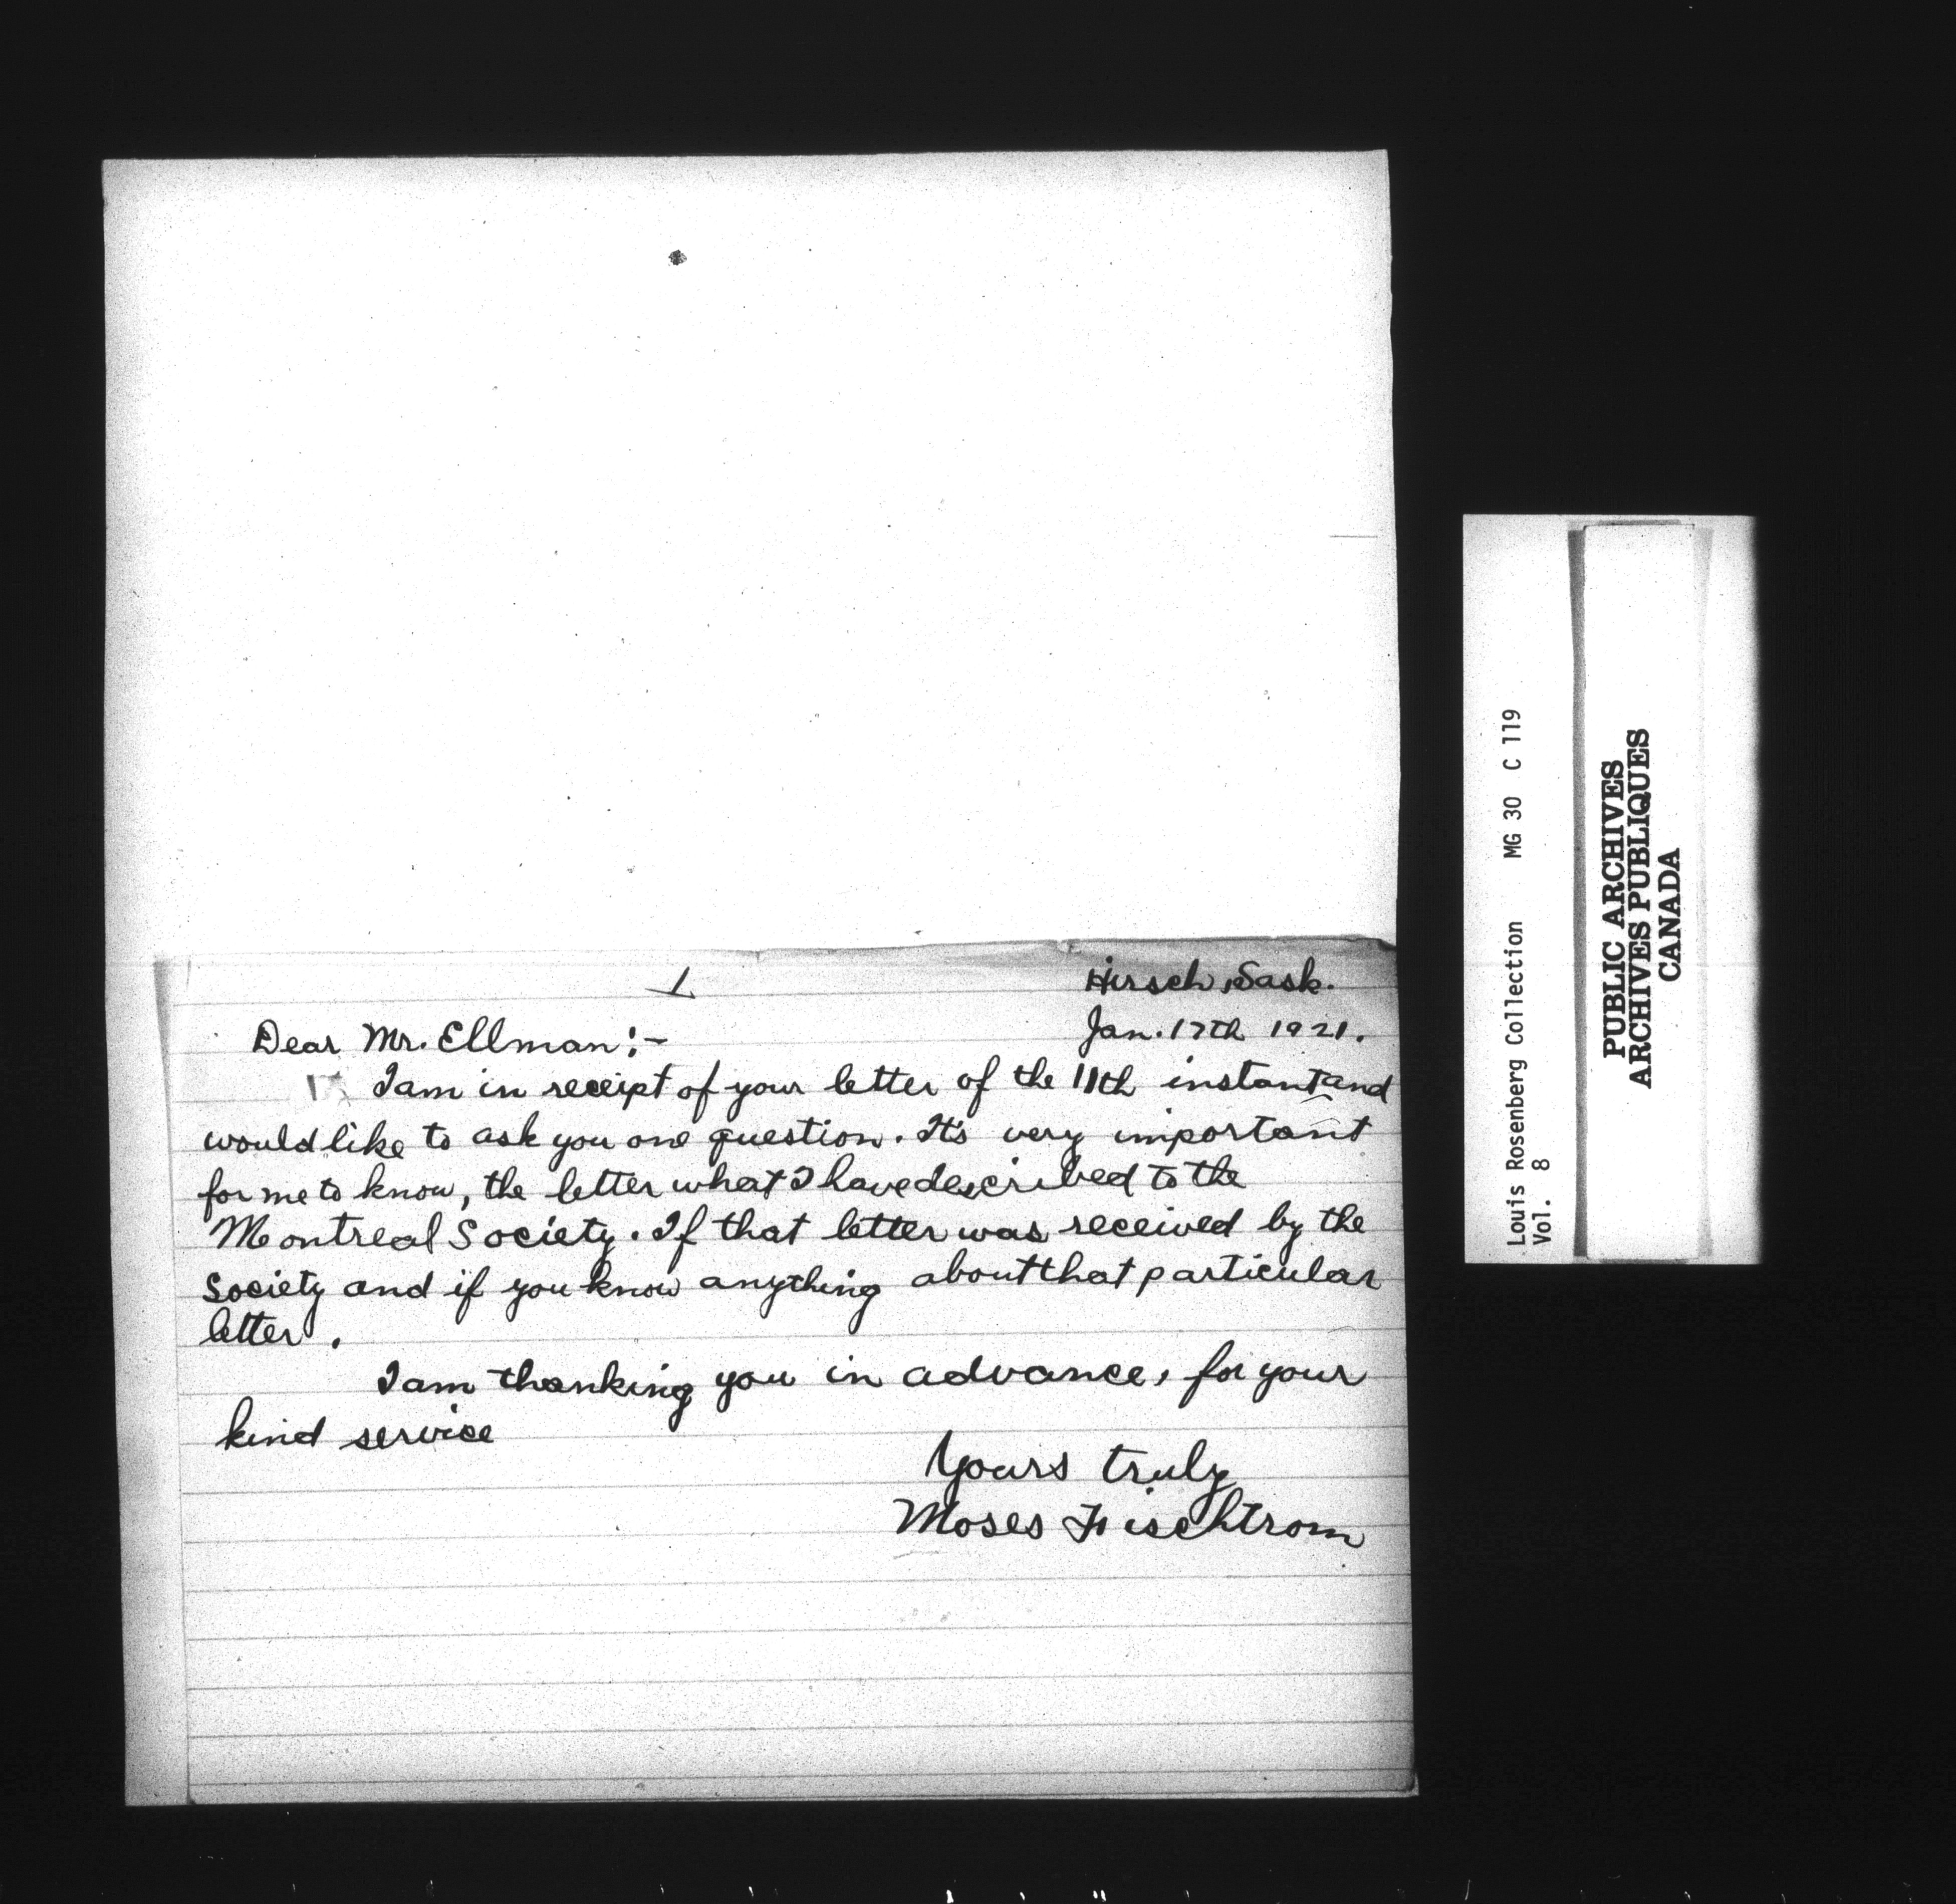 1
Hirsch, Sask.
Jan. 17th 1921.
Dear Mr. Ellman:-
I am in receipt of your letter of the 11th instant and
would like to ask you one question. It's very important
for me to know, the letter what I have descrived to the
Montreal Society. If that letter was received by the
Society and if you know anything about that particular
letter.
I am thanking you in advance, for your
kind service
Yours truly
Moses Fischtrom
Louis Rosenberg Collection MG 30 C 119
Vol. 8
PUBLIC ARCHIVES
ARCHIVES PUBLIQUES
CANADA